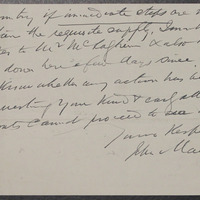 country if immediate steps are n
the requisite supply, I sent
to Mr McLaghlin & also
down here a few days since
know whether any action has b
Your kind & early att
cannot proceed to
Yours Resp
John Ma